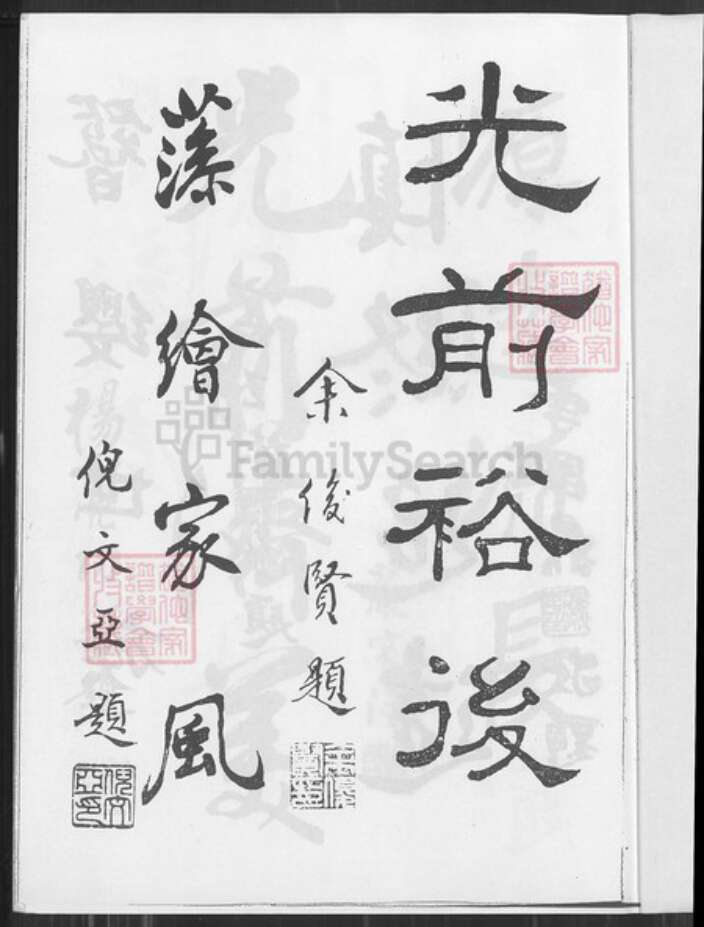 光前裕後
余俊賢題
藻繪家風
倪文亞題
FamilySearch